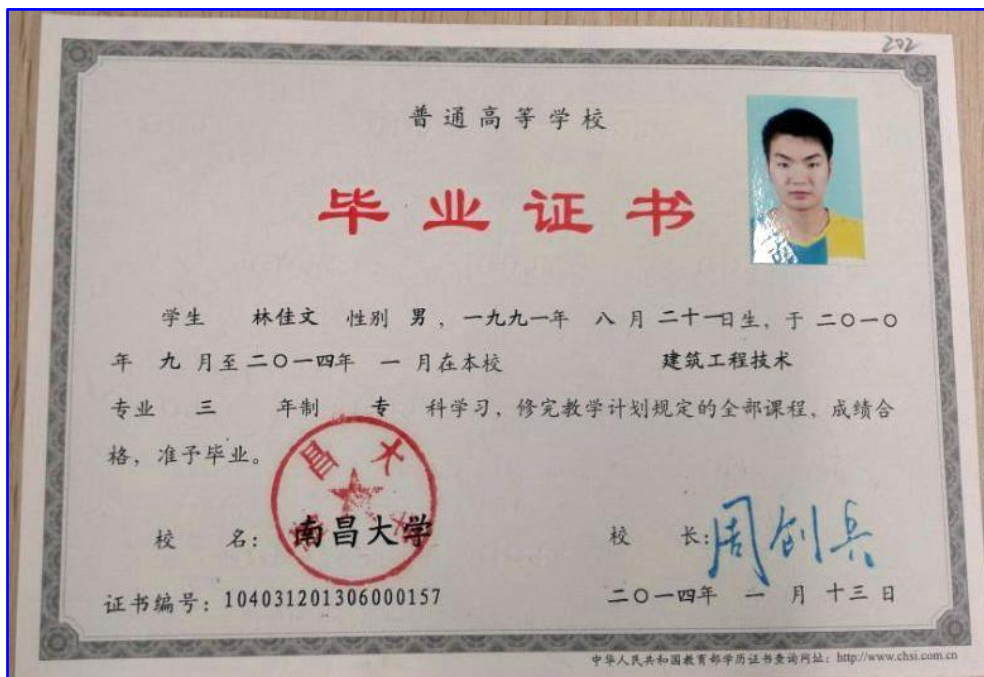 202
普通高等学校
毕业证书
学生 林佳文 性别 男，一九九一年 八 月 二十一日生，于 二〇一〇
年 九 月至 二〇一四年 一 月在本校 建筑工程技术
专业 三 年制 专 科学习，修完教学计划规定的全部课程，成绩合
格，准予毕业。
校 名：南昌大学
校 长：周创兵
证书编号：104031201306000157
二〇一四年 一 月 十三 日
中华人民共和国教育部学历证书查询网址：http://www.chsi.com.cn